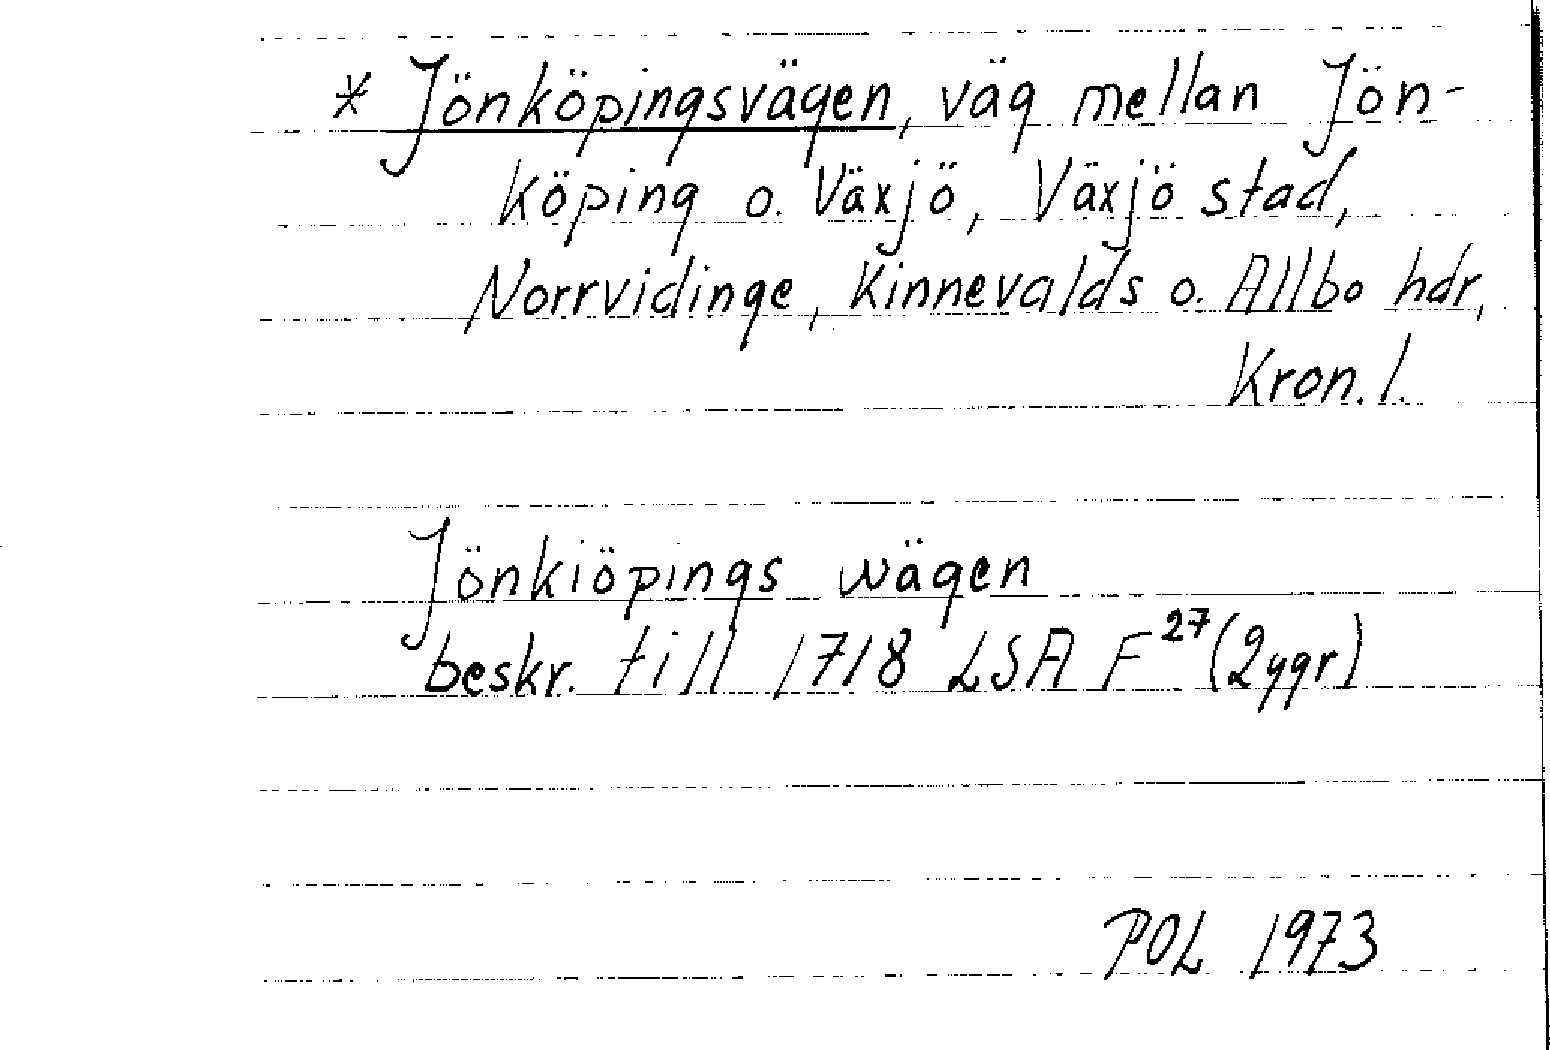 * Jönköpingsvägen, väg mellan Jön-
köping o. Växjö, Växjö stad,
Norrvidinge, Kinnevalds o. Allbo hdr,
Kron. l.
Jönkiöpings wägen
beskr. till 1718 LSA F 27 (2ggr)
POL 1973